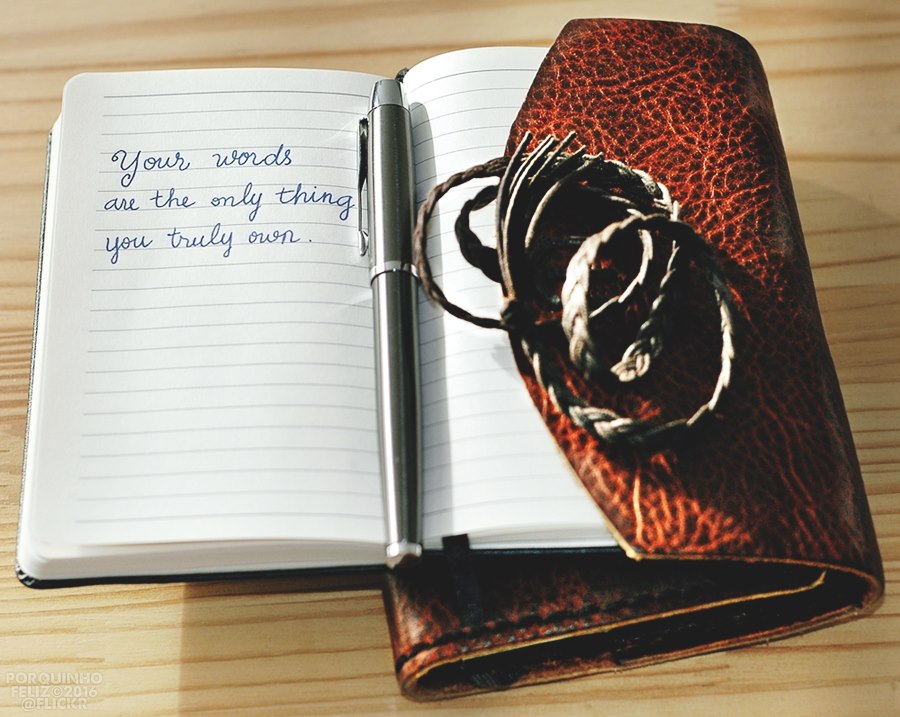 Your words
are the only thing
you truly own.
PORQUINHO
FELIZ©2016
@FLICKR